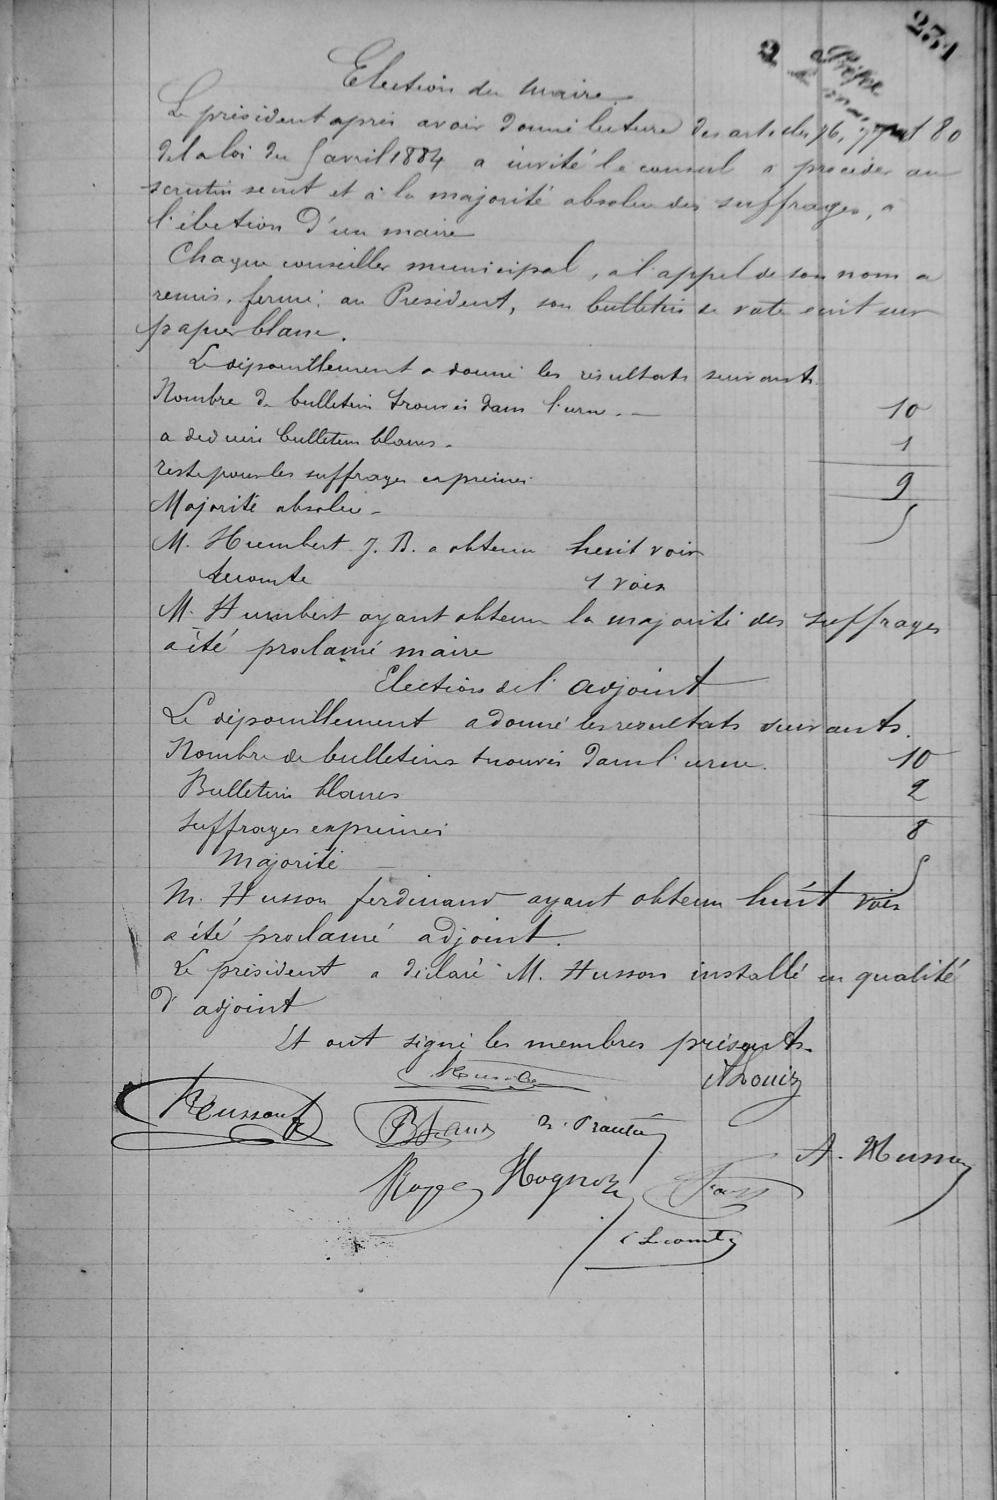 231
Election du maire
Le président après avoir donné lecture des articles 76, 77, et 80
de la loi du 5 avril 1884 a invité le conseil a procéder au
scrutin secret et à la majorité absolue des suffrages, a
l'élection d'un maire
Chaque conseiller municipal, a l'appel de son nom a
remis, fermé, au Président, son bulletin de vote ecrit sur
papier blanc.
Le dépouillement a donné les résultats suivants
Nombre de bulletin trouvés dans l'urne. 10
a deduire bulletin blancs. 1
reste pour les suffrages exprimés 9
Majorité absolue 5
M. Humbert J. B. a obtenu huit voix
Lecomte 1 voix
M. Humbert ayant obtenu la majorité des suffrages
a été proclamé maire
Election de l'adjoint
Le dépouillement a donné les résultats suivants.
Nombre de bulletins trouvés dans l'urne. 10
Bulletin blancs 2
suffrages exprimés 8
Majorité 5
M. Husson ferdinand ayant obtenu huit voix
a été proclamé adjoint.
Le président a déclaré M. Husson installé en qualité
d'adjoint
Et ont signé les membres présents.
A Louis
Husson f
A. Husson
Hognon
Lecomte